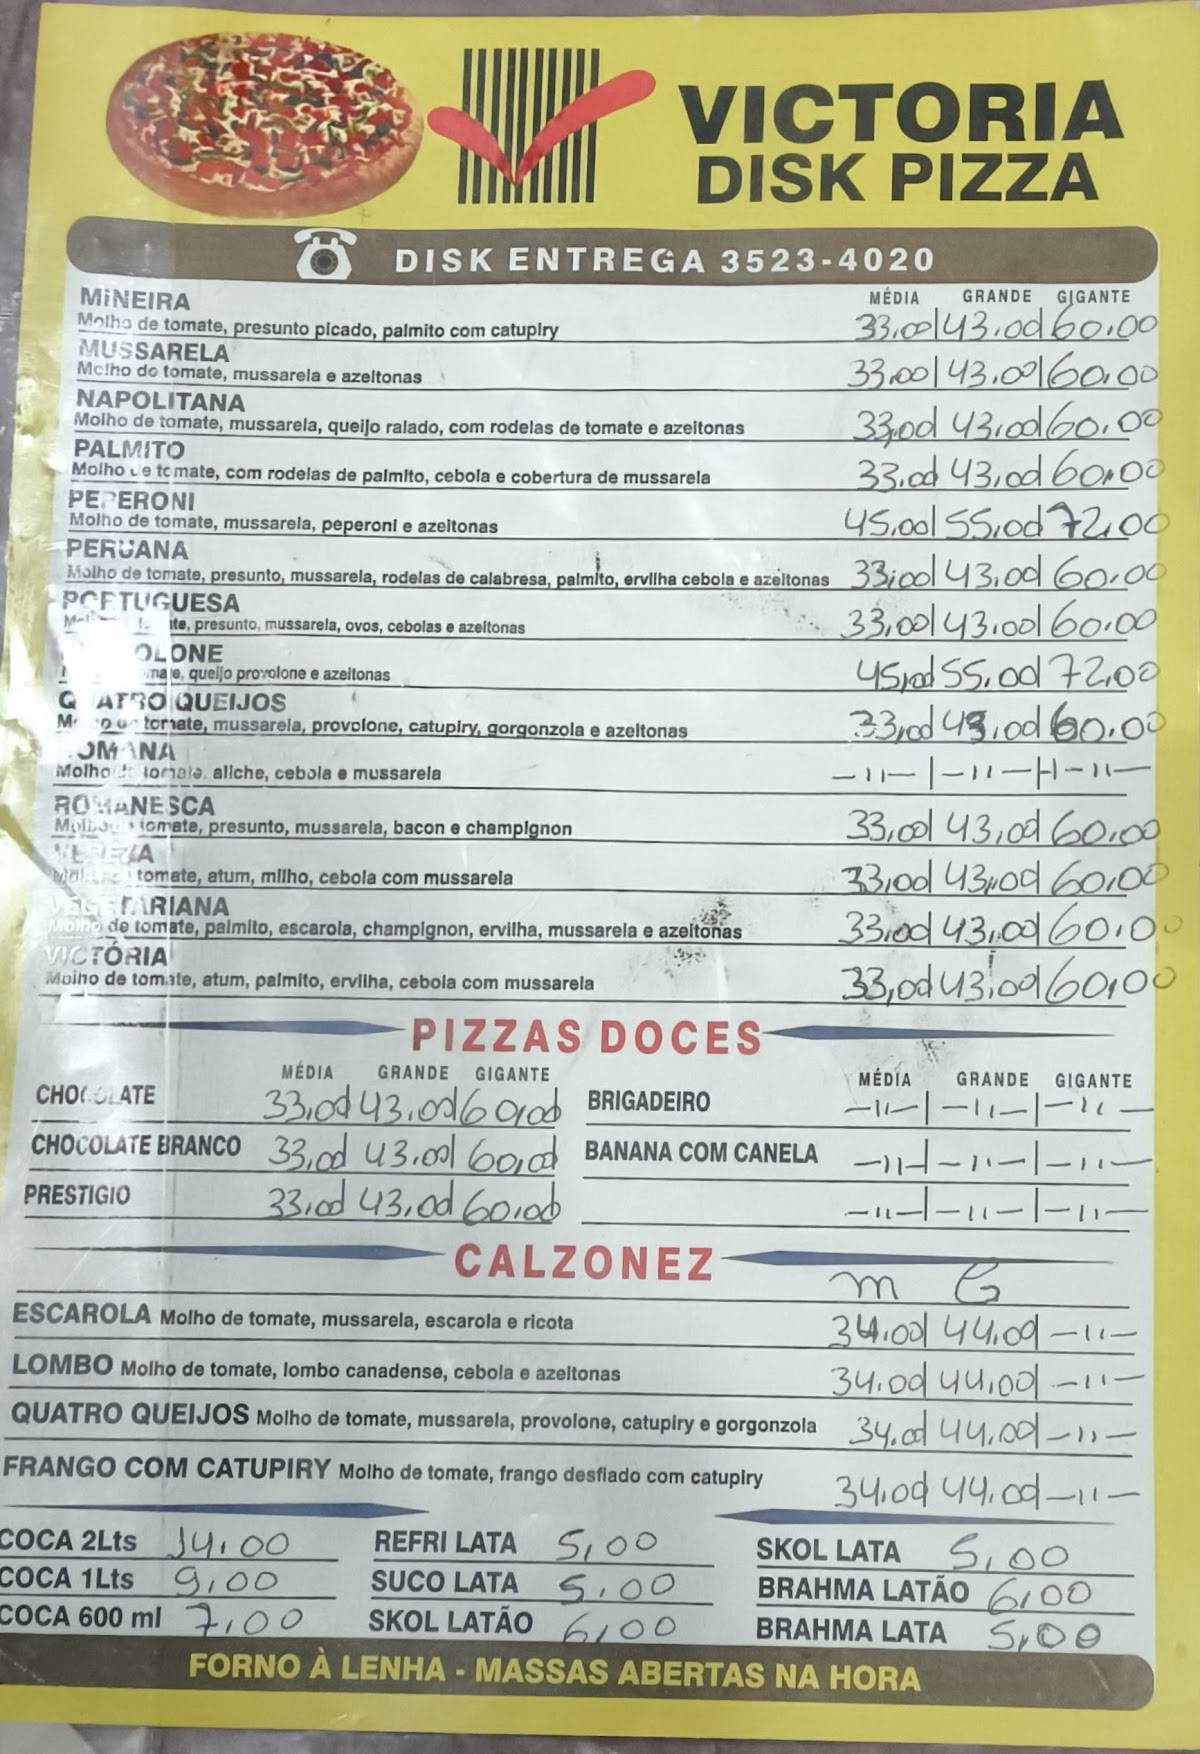 VICTORIA
DISK PIZZA
DISK ENTREGA 3523-4020
MÉDIA GRANDE GIGANTE
MINEIRA
Molho de tomate, presunto picado, palmito com catupiry 33,00 43,00 60,00
MUSSARELA
Molho de tomate, mussarela e azeitonas 33,00 43,00 60,00
NAPOLITANA
Molho de tomate, mussarela, queijo ralado, com rodelas de tomate e azeitonas 33,00 43,00 60,00
PALMITO
Molho de tomate, com rodelas de palmito, cebola e cobertura de mussarela 33,00 43,00 60,00
PEPERONI
Molho de tomate, mussarela, peperoni e azeitonas 45,00 55,00 72,00
PERUANA
Molho de tomate, presunto, mussarela, rodelas de calabresa, palmito, ervilha cebola e azeitonas 33,00 43,00 60,00
PORTUGUESA
presunto, mussarela, ovos, cebolas e azeitonas 33,00 43,00 60,00
OLONE
queijo provolone e azeitonas 45,00 55,00 72,00
QUATRO QUEIJOS
Molho de tomate, mussarela, provolone, catupiry, gorgonzola e azeitonas 33,00 43,00 60,00
ROMANA
Molho de tomate, aliche, cebola e mussarela -11- -11- -11-
ROMANESCA
Molho de tomate, presunto, mussarela, bacon e champignon 33,00 43,00 60,00
tomate, atum, milho, cebola com mussarela 33,00 43,00 60,00
VEGETARIANA
Molho de tomate, palmito, escarola, champignon, ervilha, mussarela e azeitonas 33,00 43,00 60,00
VICTÓRIA
Molho de tomate, atum, palmito, ervilha, cebola com mussarela 33,00 43,00 60,00
PIZZAS DOCES
MÉDIA GRANDE GIGANTE
CHOCOLATE 33,00 43,00 60,00
CHOCOLATE BRANCO 33,00 43,00 60,00
PRESTIGIO 33,00 43,00 60,00
MÉDIA GRANDE GIGANTE
BRIGADEIRO -11- -11- -11-
BANANA COM CANELA -11- -11- -11-
-11- -11- -11-
CALZONEZ
m G
ESCAROLA Molho de tomate, mussarela, escarola e ricota 34,00 44,00 -11-
LOMBO Molho de tomate, lombo canadense, cebola e azeitonas 34,00 44,00 -11-
QUATRO QUEIJOS Molho de tomate, mussarela, provolone, catupiry e gorgonzola 34,00 44,00 -11-
FRANGO COM CATUPIRY Molho de tomate, frango desfiado com catupiry 34,00 44,00 -11-
COCA 2Lts 14,00
COCA 1Lts 9,00
COCA 600 ml 7,00
REFRI LATA 5,00
SUCO LATA 5,00
SKOL LATÃO 6,00
SKOL LATA 5,00
BRAHMA LATÃO 6,00
BRAHMA LATA 5,00
FORNO À LENHA - MASSAS ABERTAS NA HORA